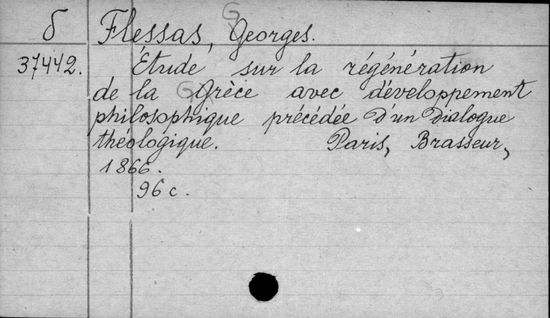 б Flessas, Georges.
37442. Étude sur la régénération
de la Grèce avec développement
philosophique précédée d'un dialogue
théologique. Paris, Brasseur,
1866.
96 c.